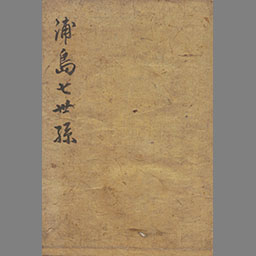 浦島七世孫